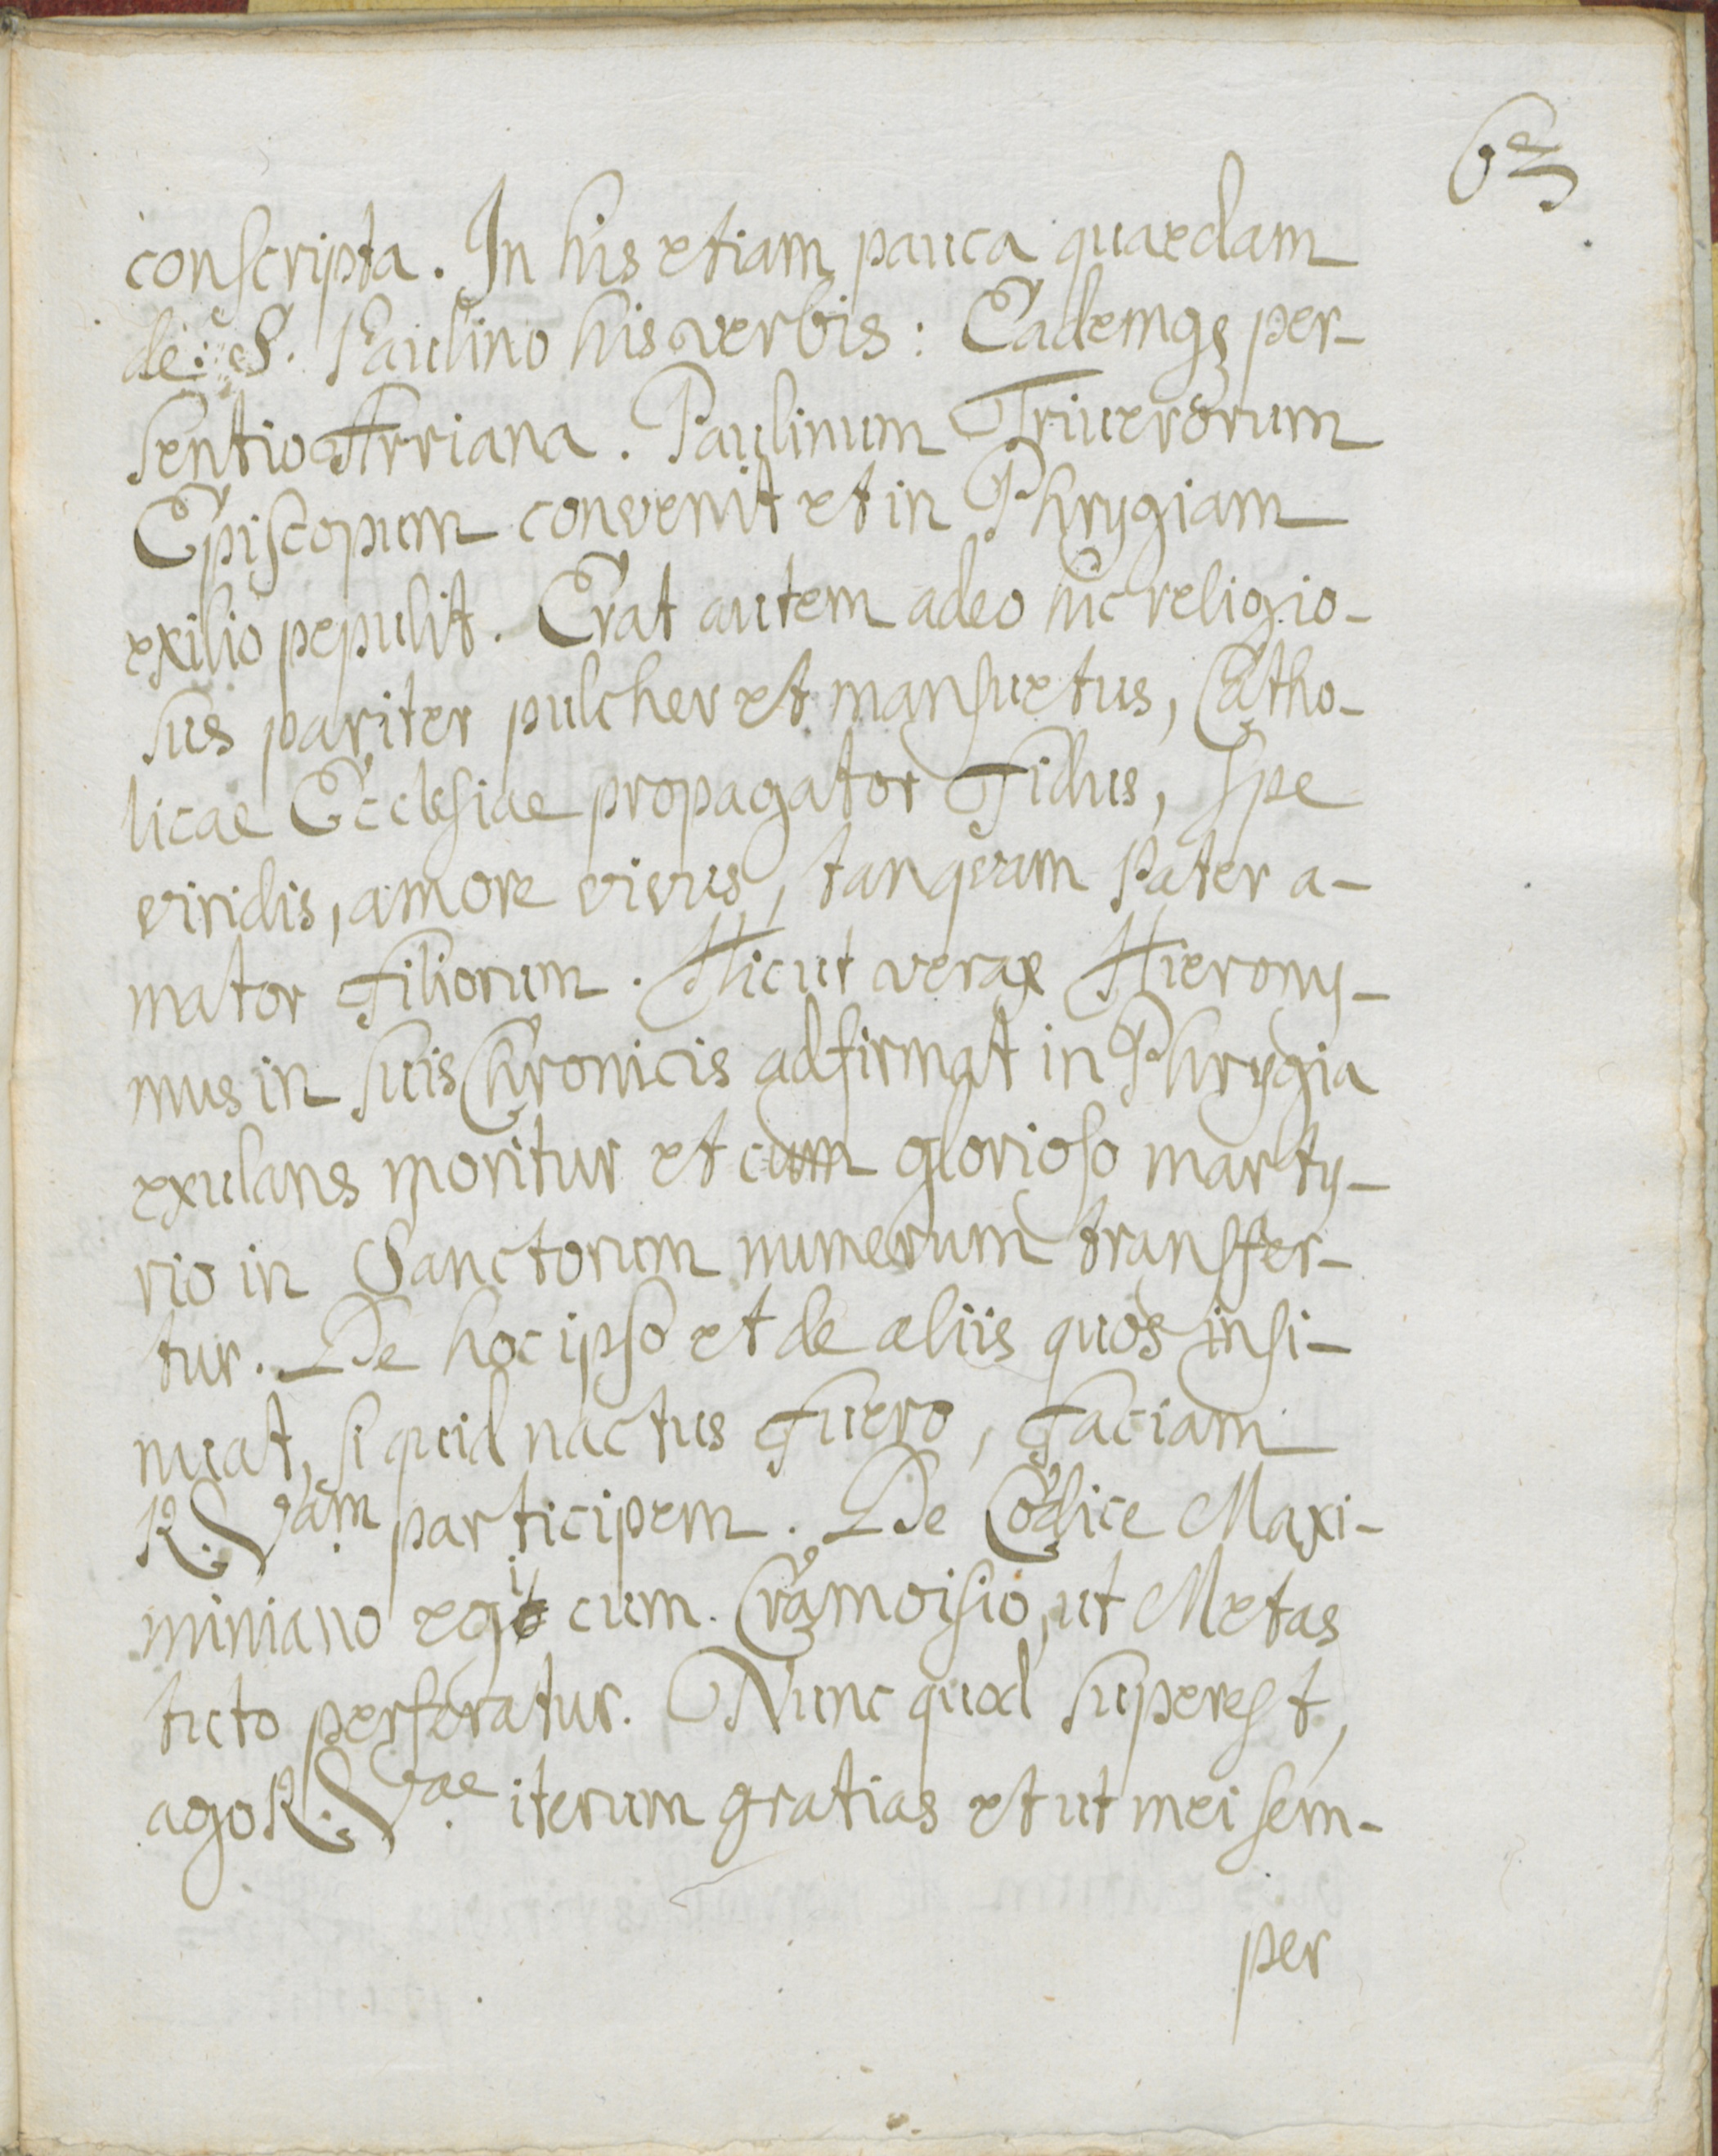 63
conscripta. In his etiam pauca quaedam
de: S. Paulino his verbis: Eademq; per-
sentio Arriana. Paulinum Triuerorum
Episcopum convenit et in Phrygiam
exilio pepulit. Erat autem adeo hic religio-
sus pariter pulcher et mansuetus, Catho-
licae Ecclesiae propagator Fidus, spe
viridis, amore vivus, tanquam Pater a-
mator Filiorum. Hic ut verax Hierony-
mus in suis Chronicis adfirmat in Phrygia
exulans moritur et cum glorioso marty-
rio in Sanctorum numerum transfer-
tur. De hoc ipso et de aliis quos insi-
nuat, si quid nactus Fuero, Faciam
R. Vam participem. De Codice Maxi-
miniano egi cum Cramoisio, ut Metas
tuto perferatur. Nunc quod superest,
ago R. Vae iterum gratias et ut mei sem-
per